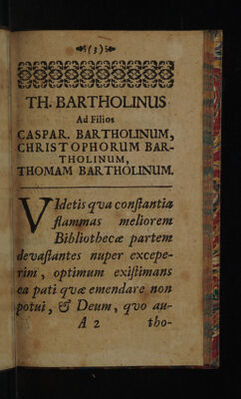 (3)
TH. BARTHOLINUS
Ad Filios
CASPAR. BARTHOLINUM,
CHRISTOPHORUM BAR-
THOLINUM,
THOMAM BARTHOLINUM.
VIdetis qva constantia
flammas meliorem
Bibliothecæ partem
devastantes nuper excepe-
rim, optimum existimans
ea pati qvæ emendare non
potui, & Deum, qvo au-
A 2 tho-